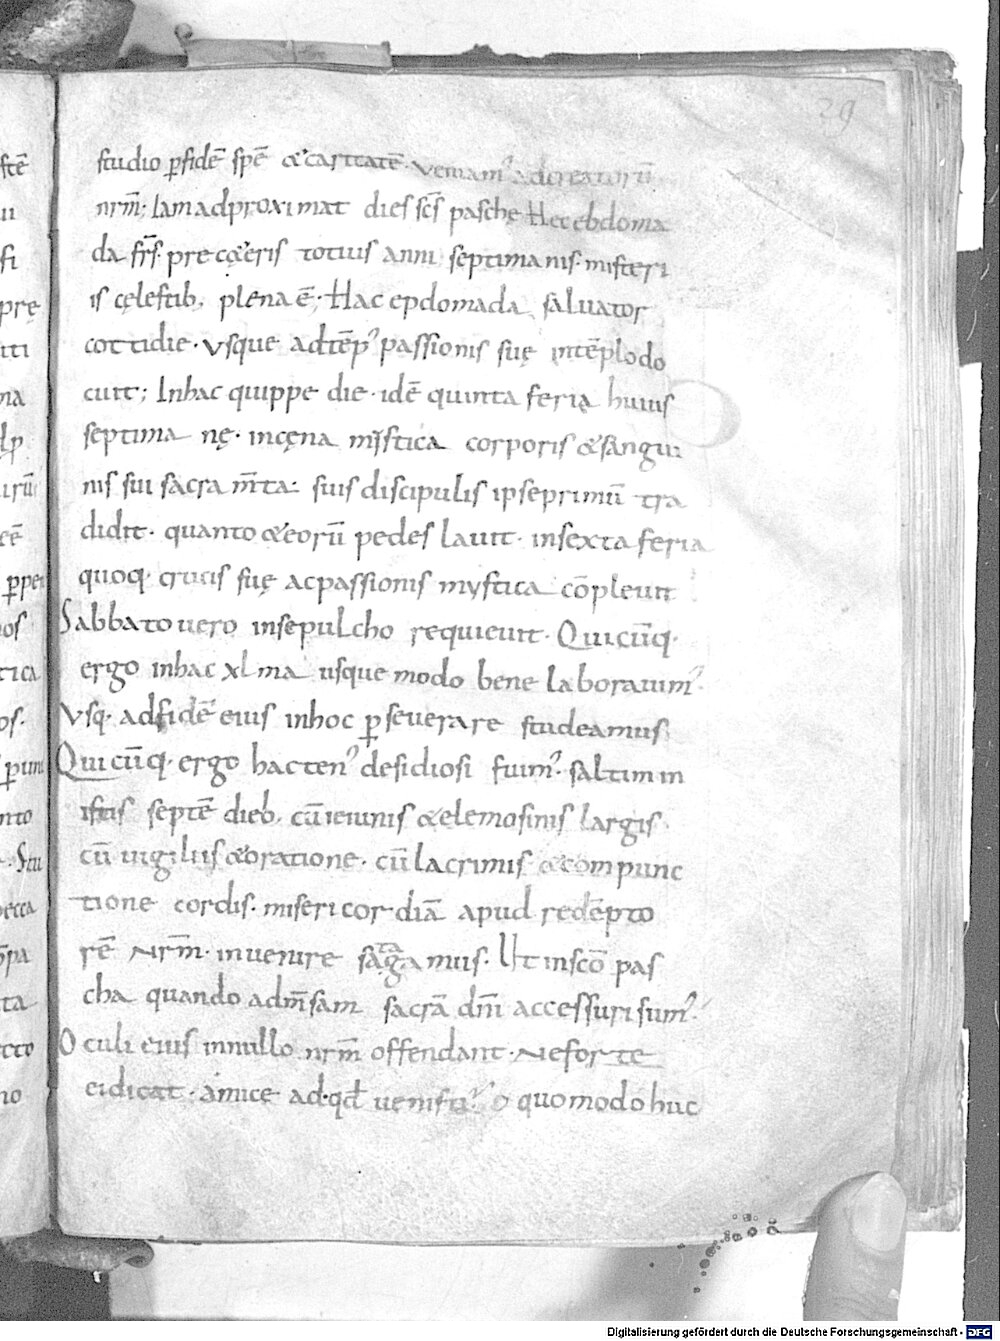 29
studio ꝑfidē spē &caritatē. veniam᾿ adcreatorū
nr̄m; Iam adproximat dies sc̄s paschę Hec ebdoma
da fr̄s. prec&eris totius anni septimanis. misteri
is cęlestib; plena ē. Hac epdomada saluator
cottidie. vsque adtēp᾿ passionis suę intēplo do
cuit; Inhac quippe die. idē quinta feria huius
septima nę. incęna mystica corporis &sangui
nis sui sacra m̄ta. suis discipulis ipse primū tra
didit. quanto &eorū pedes lauit. insexta feria
quoq. crucis suę ac passionis mystica cōpleuit
Sabbato uero insepulcho requieuit. Quicūq.
ergo inhac xl ma usque modo bene laborauim᾿.
Vsq. adfidē eius inhoc ꝑseuerare studeamus
Quicūq. ergo hacten᾿ desidiosi fuim᾿. saltim in
istis septē dieb; cū ieiunis &elemosinis largis
cū uigiliis &oratione. cū lacrimis &compunc
tione cordis. misericordiā apud redēpto
rē nr̄m. inuenire satagamus. Ut inscō pas
cha quando adm̄sam sacrā dn̄i accessuri sum᾿.
Oculi eius innullo nr̄m offendant. Neforte
ei dicat. amice ad.qd̄ uenisti? quomodo huc
Digitalisierung gefördert durch die Deutsche Forschungsgemeinschaft - DFG